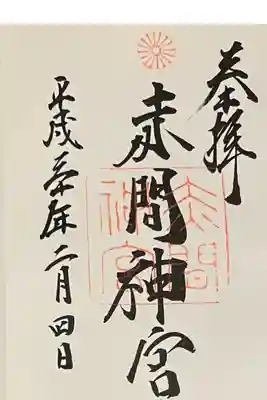 奉拝
赤間神宮
赤間
神宮
平成三十年二月四日